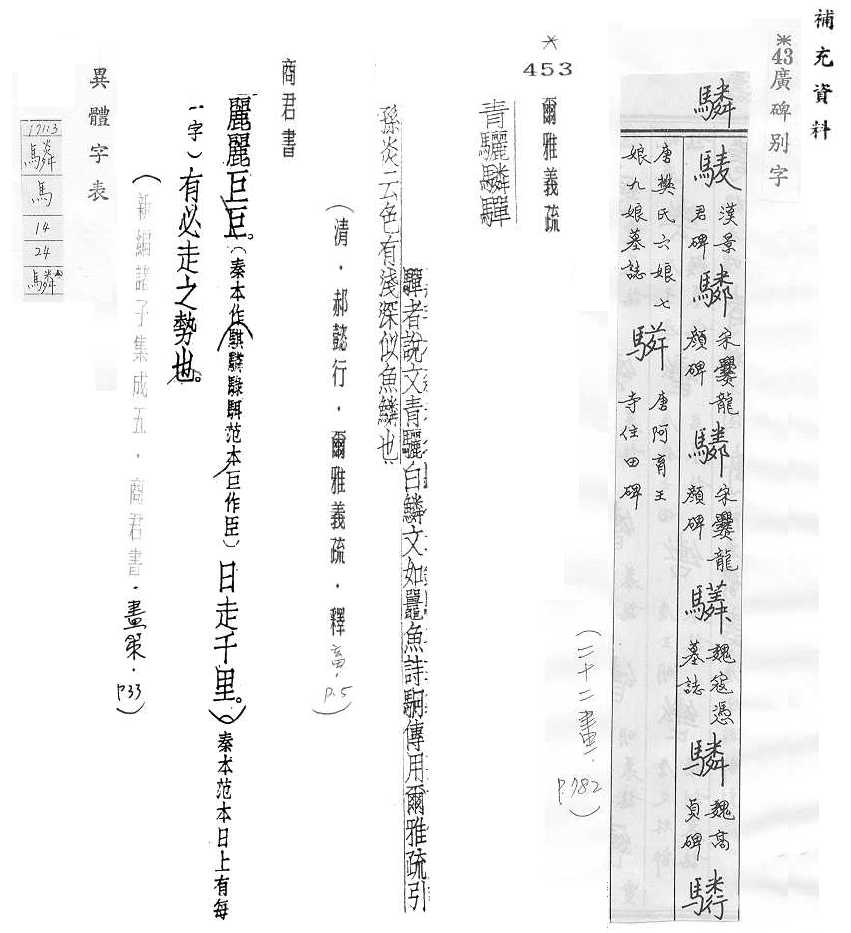 補充資料
*43廣碑別字
驎
漢景
君碑
宋爨龍
顏碑
宋爨龍
顏碑
魏寇憑
墓誌
驎
魏高
貞碑
唐樊氏六娘七
娘九娘墓誌
唐阿育王
寺住田碑
(二十二畫.
P.782)
*
453
爾雅義疏
青驪驎驒
驒者說文青驪白鱗文如鼉魚詩駉傳用爾雅疏引
孫炎云色有淺深似魚鱗也
(清.郝懿行.爾雅義疏.釋畜.
P.5)
商君書
麗麗巨巨。(秦本作騏驎騄駬范本巨作臣)日走千里。(○秦本范本日上有每
一字)有必走之勢也。
(新編諸子集成五.商君書.畫策.
P33)
異體字表
17113
驎
馬
14
24